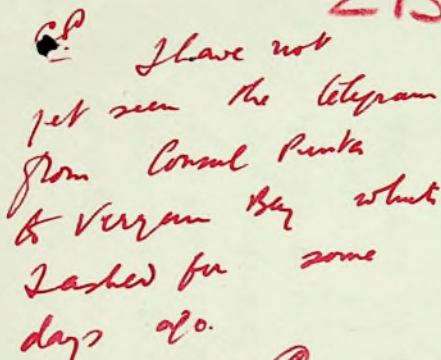 I have not
yet seen the telegram
from Consul Punta
to Vergam Bay which
I asked for some
days ago.